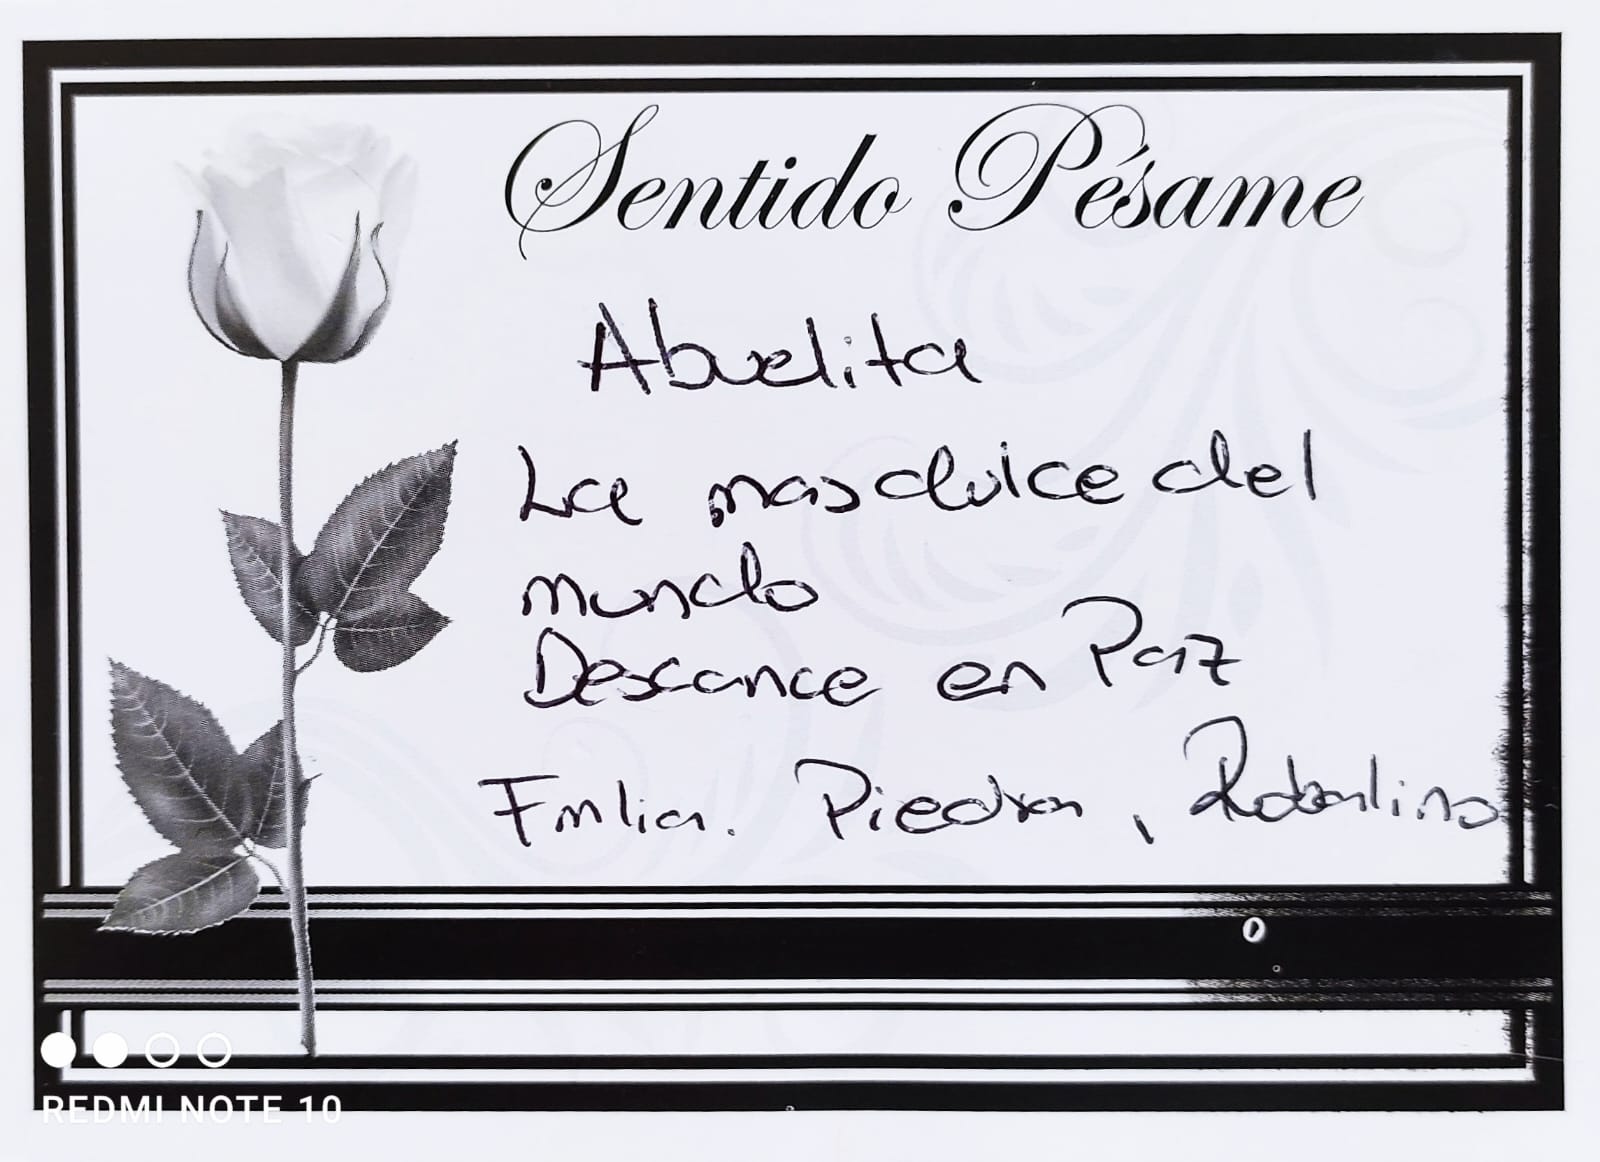 Sentido Pésame
Abuelita
La mas dulce del
mundo
Descance en Paz
Fmlia. Piedra, Robalino
REDMI NOTE 10